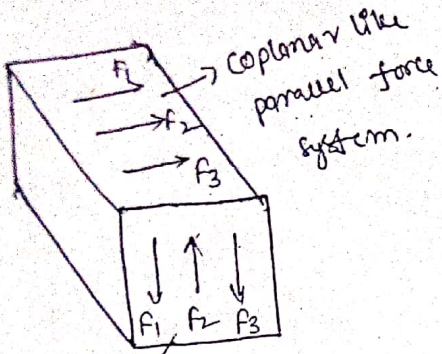 F1
coplanar like
parallel force
system.
F2
F3
F1 F2 F3